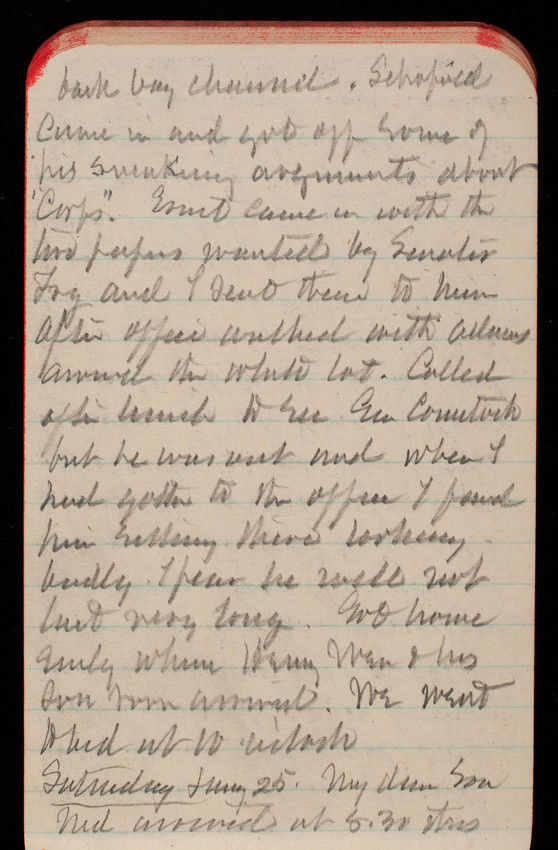 back bay channel. Schofield
came in and got off some of
his sneaking arguments about
"Corps". came in with the
two papers wanted by Senator
Fry and I sent them to him
After office walked with Adams
around the White lot. Called
after lunch to see Gen Comstock
but he was out and when I
had gotten to the office I found
him sitting there looking
badly. I fear he will not
last very long. Got home
early where Henry & his
son soon arrived. We went
to bed at 10 o'clock
Saturday Jany 25. My dear Son
Ned arrived at 8.30 this